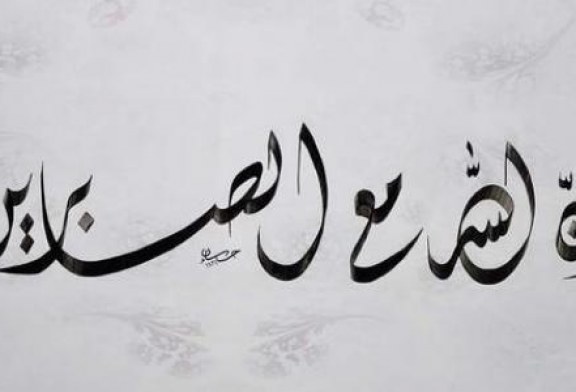 نّ اللّه مع الصبرين